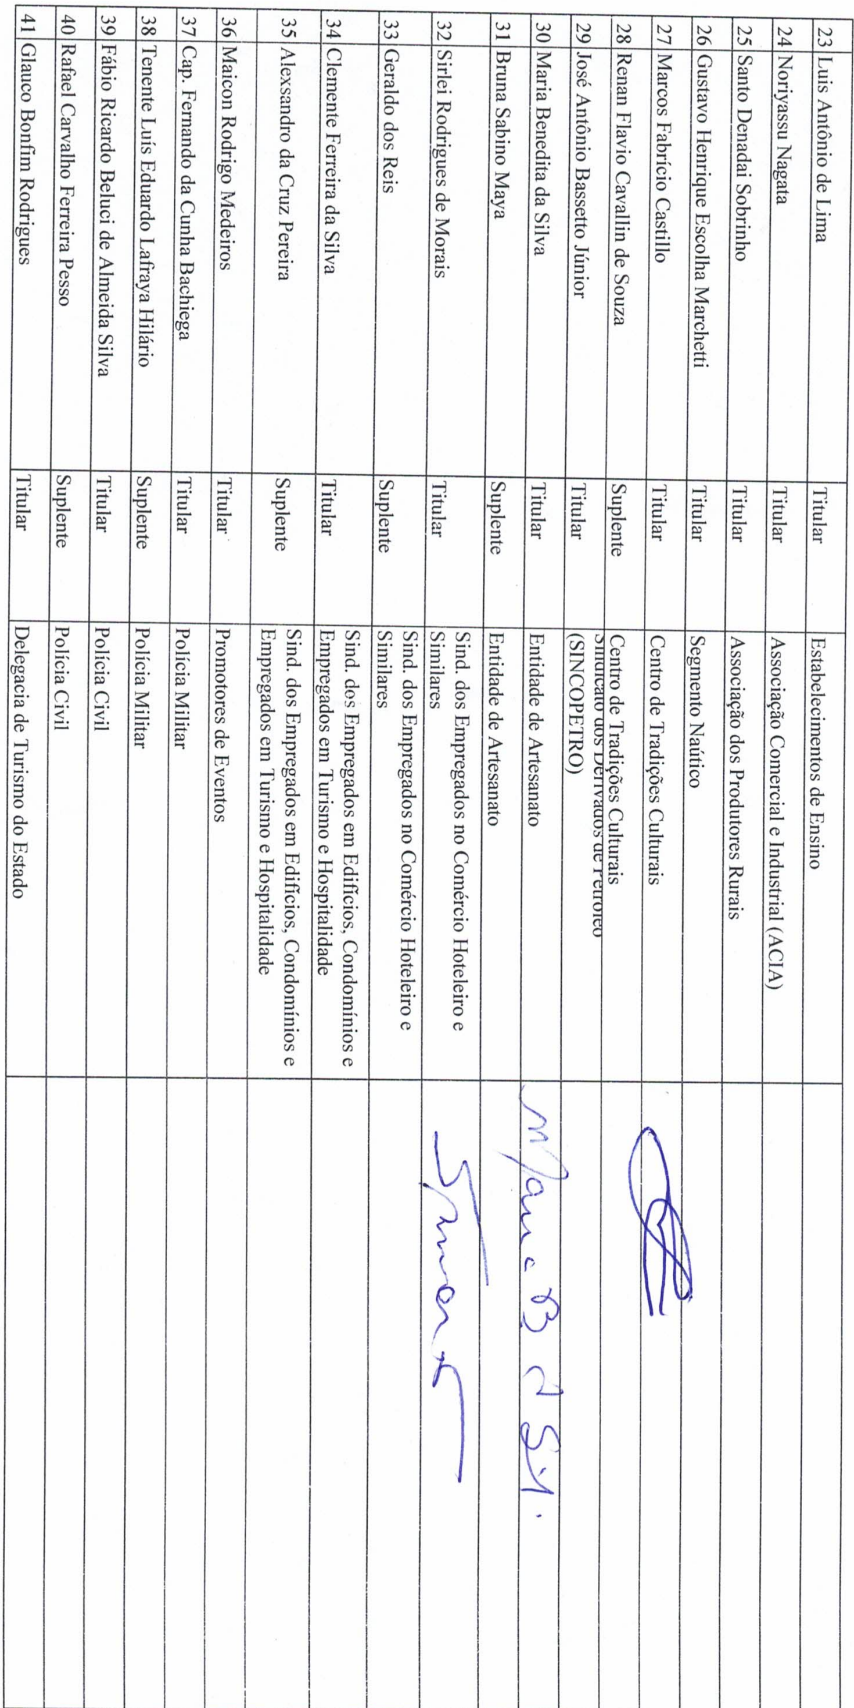 23 Luis Antônio de Lima Titular Estabelecimentos de Ensino
24 Noriyassu Nagata Titular Associação Comercial e Industrial (ACIA)
25 Santo Denadai Sobrinho Titular Associação dos Produtores Rurais
26 Gustavo Henrique Escolha Marchetti Titular Segmento Naútico
27 Marcos Fabrício Castillo Titular Centro de Tradições Culturais
28 Renan Flavio Cavallin de Souza Suplente Centro de Tradições Culturais
29 José Antônio Bassetto Júnior Titular Sindicato dos Derivados de Petróleo
(SINCOPETRO)
30 Maria Benedita da Silva Titular Entidade de Artesanato Maria B d Sil.
31 Bruna Sabino Maya Suplente Entidade de Artesanato
32 Sirlei Rodrigues de Morais Titular Sind. dos Empregados no Comércio Hoteleiro e
Similares
33 Geraldo dos Reis Suplente Sind. dos Empregados no Comércio Hoteleiro e
Similares
34 Clemente Ferreira da Silva Titular Sind. dos Empregados em Edifícios, Condomínios e
Empregados em Turismo e Hospitalidade
35 Alexsandro da Cruz Pereira Suplente Sind. dos Empregados em Edifícios, Condomínios e
Empregados em Turismo e Hospitalidade
36 Maicon Rodrigo Medeiros Titular Promotores de Eventos
37 Cap. Fernando da Cunha Bachiega Titular Polícia Militar
38 Tenente Luís Eduardo Lafraya Hilário Suplente Polícia Militar
39 Fábio Ricardo Beluci de Almeida Silva Titular Polícia Civil
40 Rafael Carvalho Ferreira Pesso Suplente Polícia Civil
41 Glauco Bonfim Rodrigues Titular Delegacia de Turismo do Estado